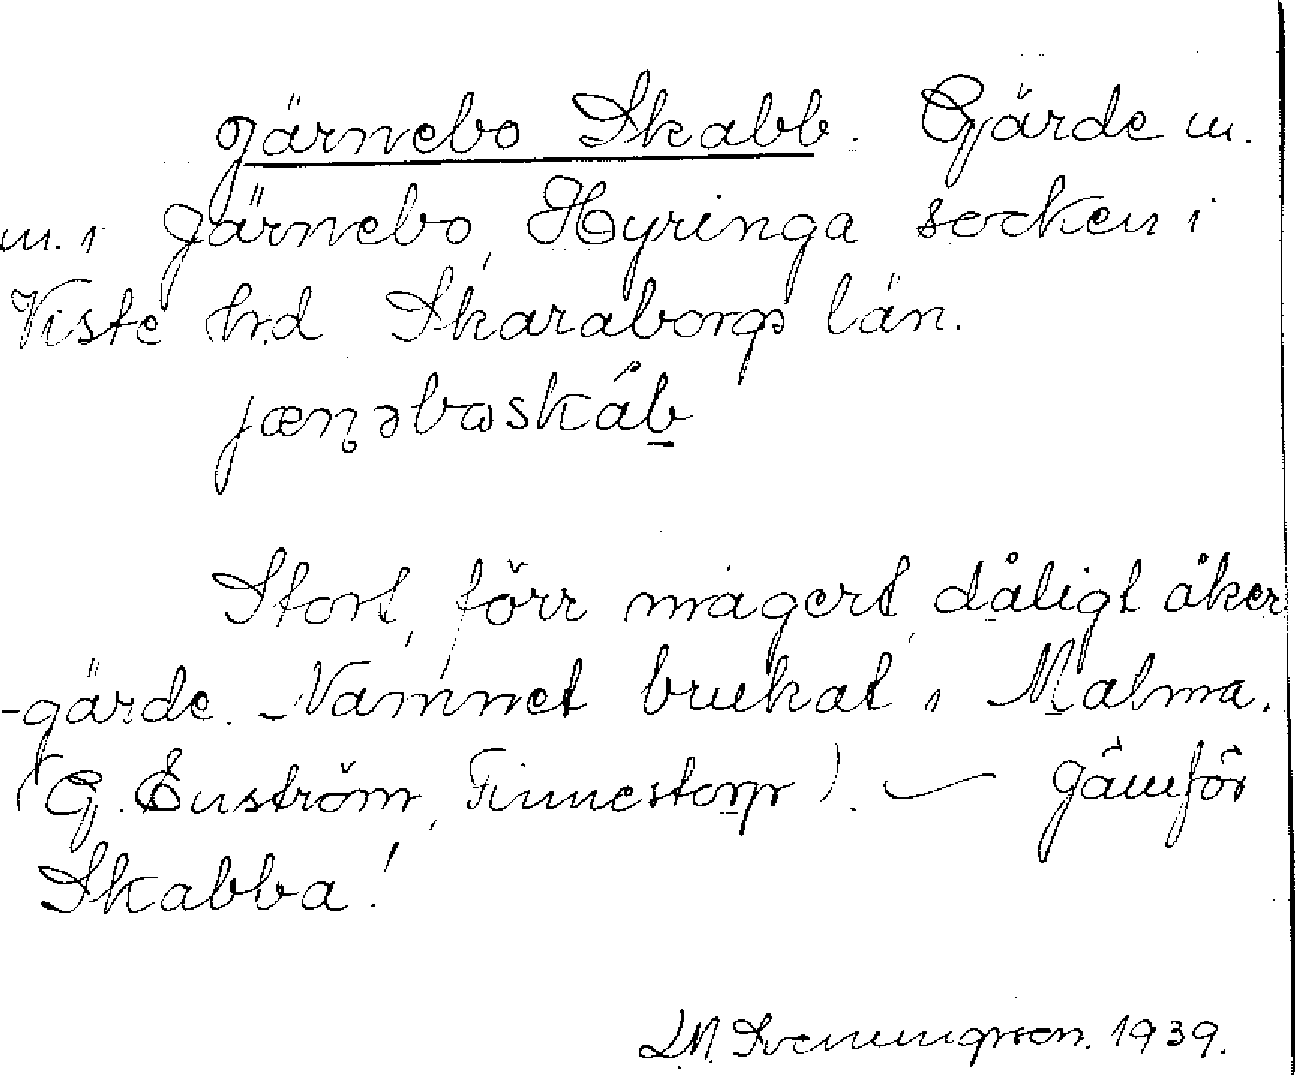 Järnebo Skabb. Gärde m.
m. i Järnebo, Hyringa socken i
Viste hd Skaraborgs län.
jæn̥əbωskáb̲
Stort, förr magert, dåligt åker
-gärde. Namnet brukat i Malma.
(G. Enström, Finnestorp). — Jämför
Skabba!
1939.